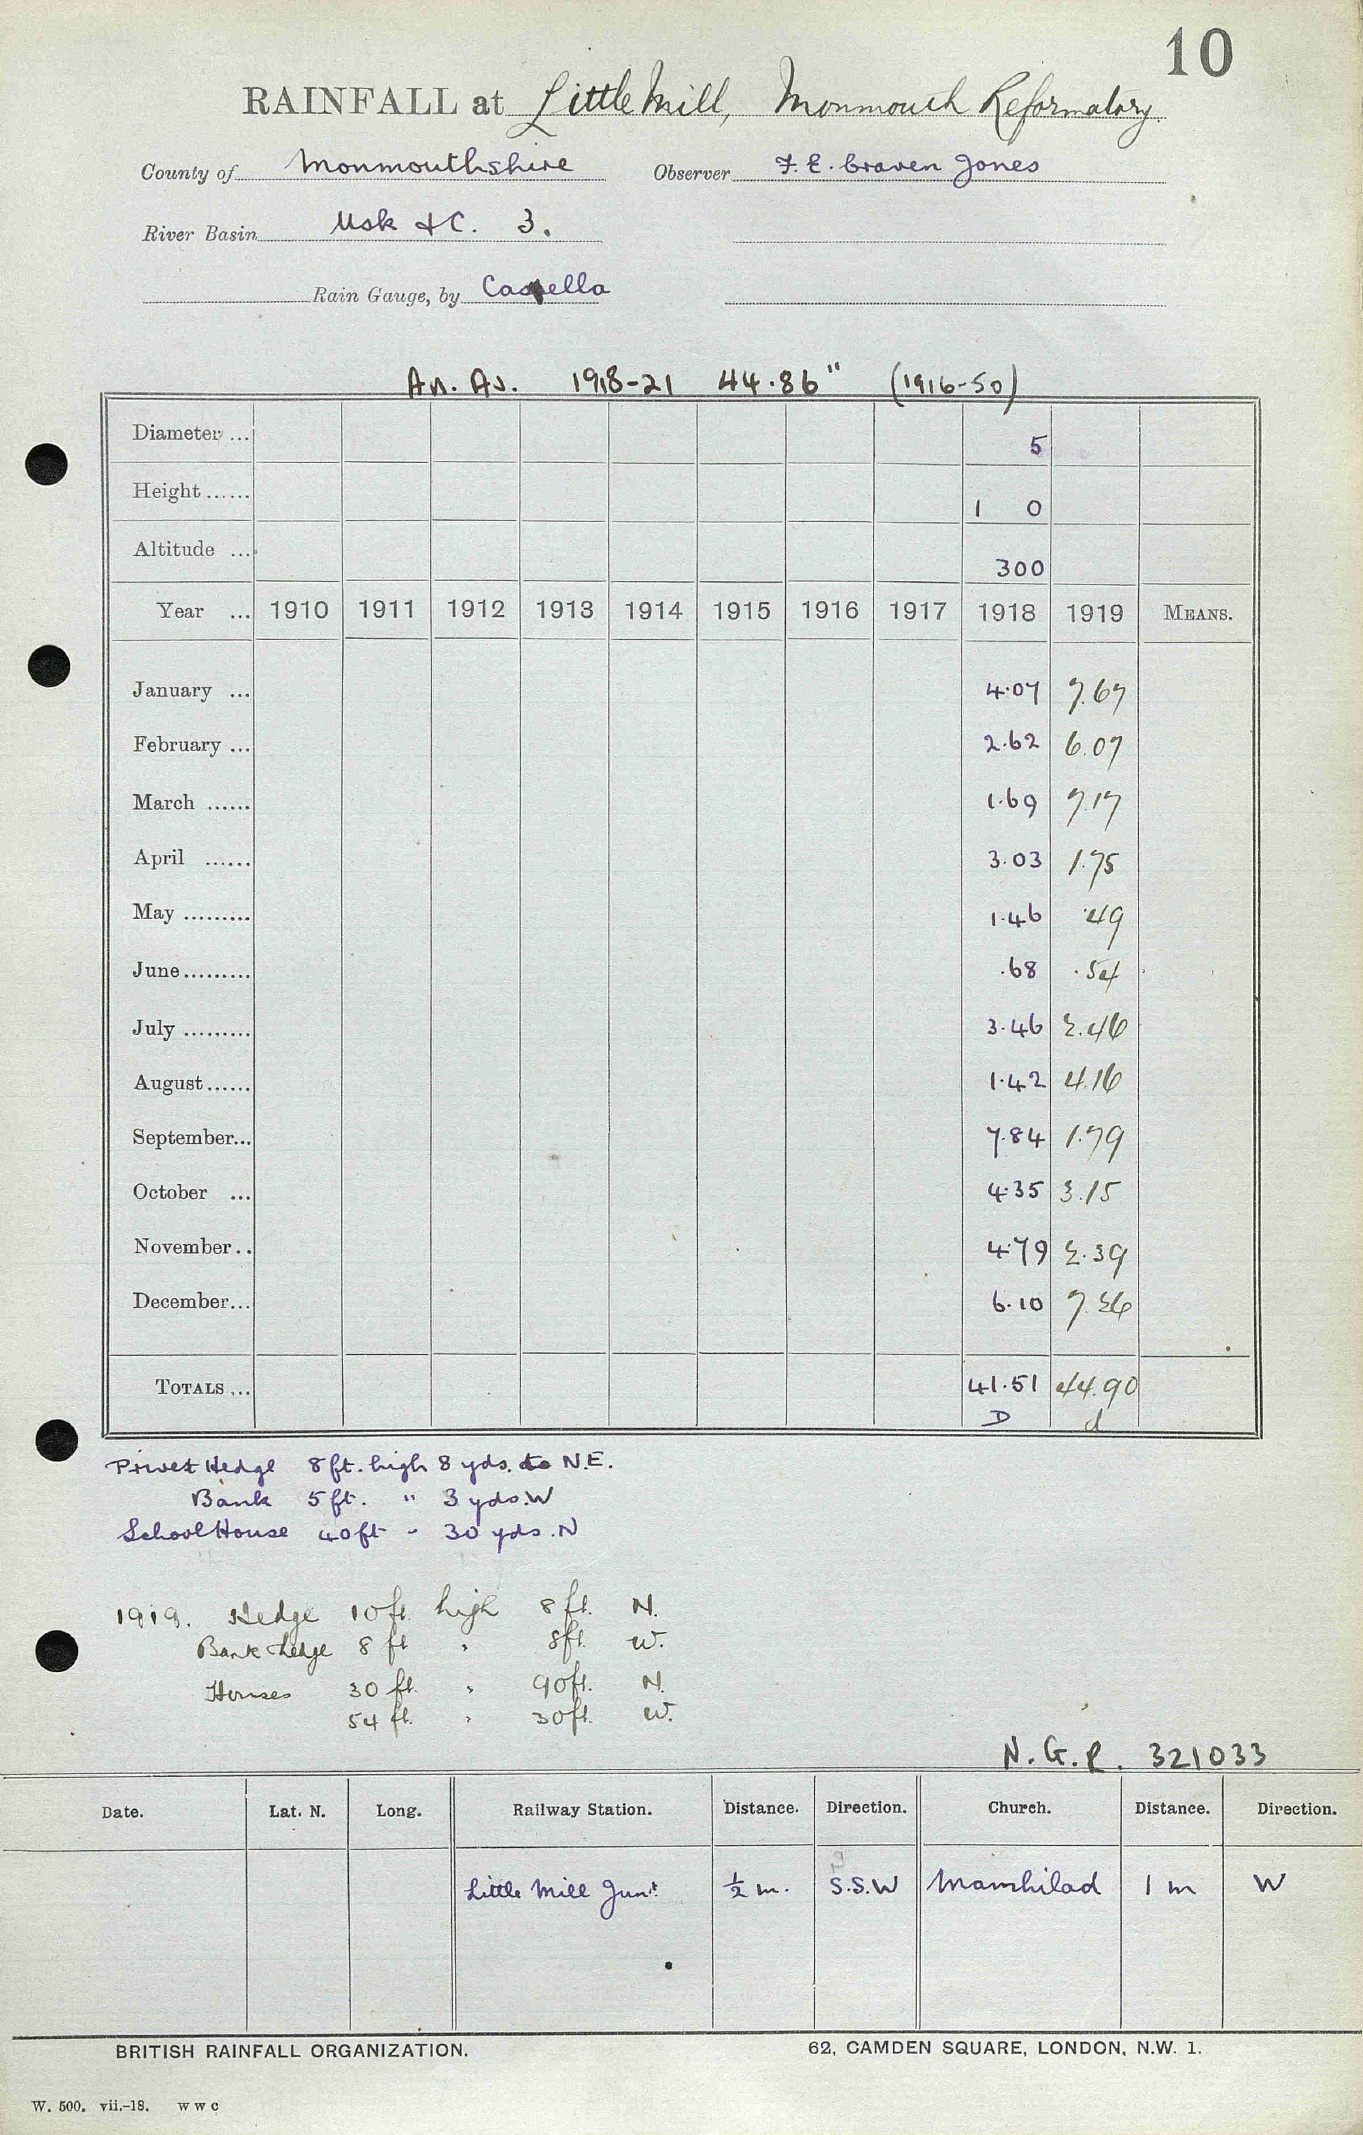 10
RAINFALL at Little Mill, Monmouth Reformatory.
County of Monmouthshire Observer F. E. Craven Jones
River Basin Usk &C. 3.
Rain Gauge, by Casella
An. Av. 1918-21 44.86" (1916-50)
Diameter ... 5
Height ...... 1 0
Altitude ... 300
Year ... 1910 1911 1912 1913 1914 1915 1916 1917 1918 1919 MEANS.
January ... 4.07 7.67
February ... 2.62 6.07
March ...... 1.69 7.17
April ...... 3.03 1.75
May ......... 1.46 .49
June......... .68 .54
July ......... 3.46 2.46
August...... 1.42 4.16
September... 7.84 1.79
October ... 4.35 3.15
November.. 4.79 2.39
December... 6.10 7.26
TOTALS... 41.51 44.90
D d
Privet Hedge 8 ft. high 8 yds. to N.E.
Bank 5 ft. " 3 yds. W
School House 40 ft " 30 yds. N
1919. Hedge 10 ft. high 8 ft. N.
Bank & hedge 8 ft " 8 ft. W.
Houses 30 ft. " 90 ft. N.
54 ft. " 30 ft. W.
N.G.R. 321033
Date. Lat. N. Long. Railway Station. Distance. Direction. Church. Distance. Direction.
Little Mill Junt. ½ m. S.S.W Mamhilad 1 m W
BRITISH RAINFALL ORGANIZATION. 62, CAMDEN SQUARE, LONDON, N.W. 1.
W. 500. vii.-18. W W C